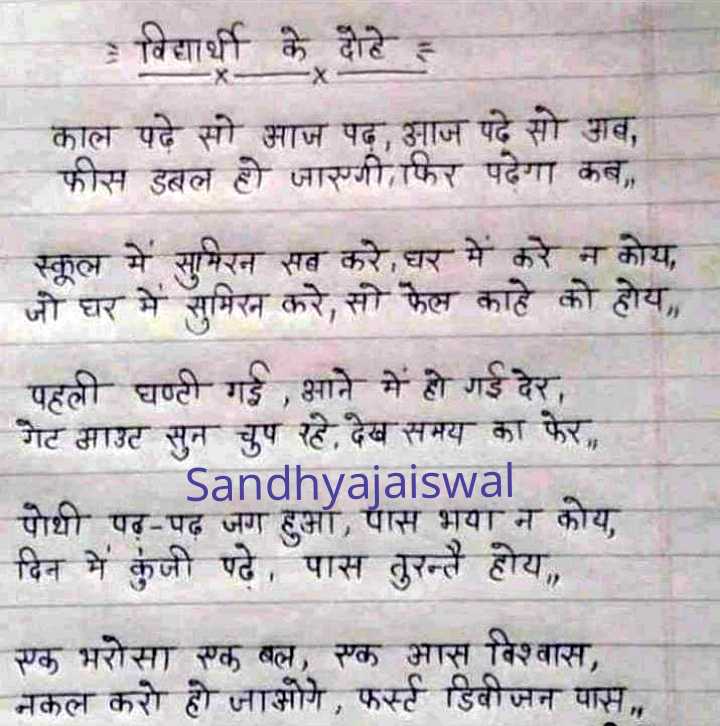 = विद्यार्थी के दोहे =
काल पढ़े सो आज पढ़, आज पढ़े सो अब,
फीस डबल हो जाएगी, फिर पढ़ेगा कब,,
स्कूल में सुमिरन सब करे, घर में करे न कोय,
जो घर में सुमिरन करे, सो फेल काहे को होय,,
पहली घण्टी गई, आने में हो गई देर,
गेट आउट सुन चुप रहे, देख समय का फेर,,
Sandhyajaiswal
पोथी पढ़-पढ़ जग हुआ, पास भया न कोय,
दिन में कुंजी पढ़े, पास तुरन्तै होय,,
एक भरोसा एक बल, एक आस विश्वास,
नकल करो हो जाओगे, फर्स्ट डिवीजन पास,,